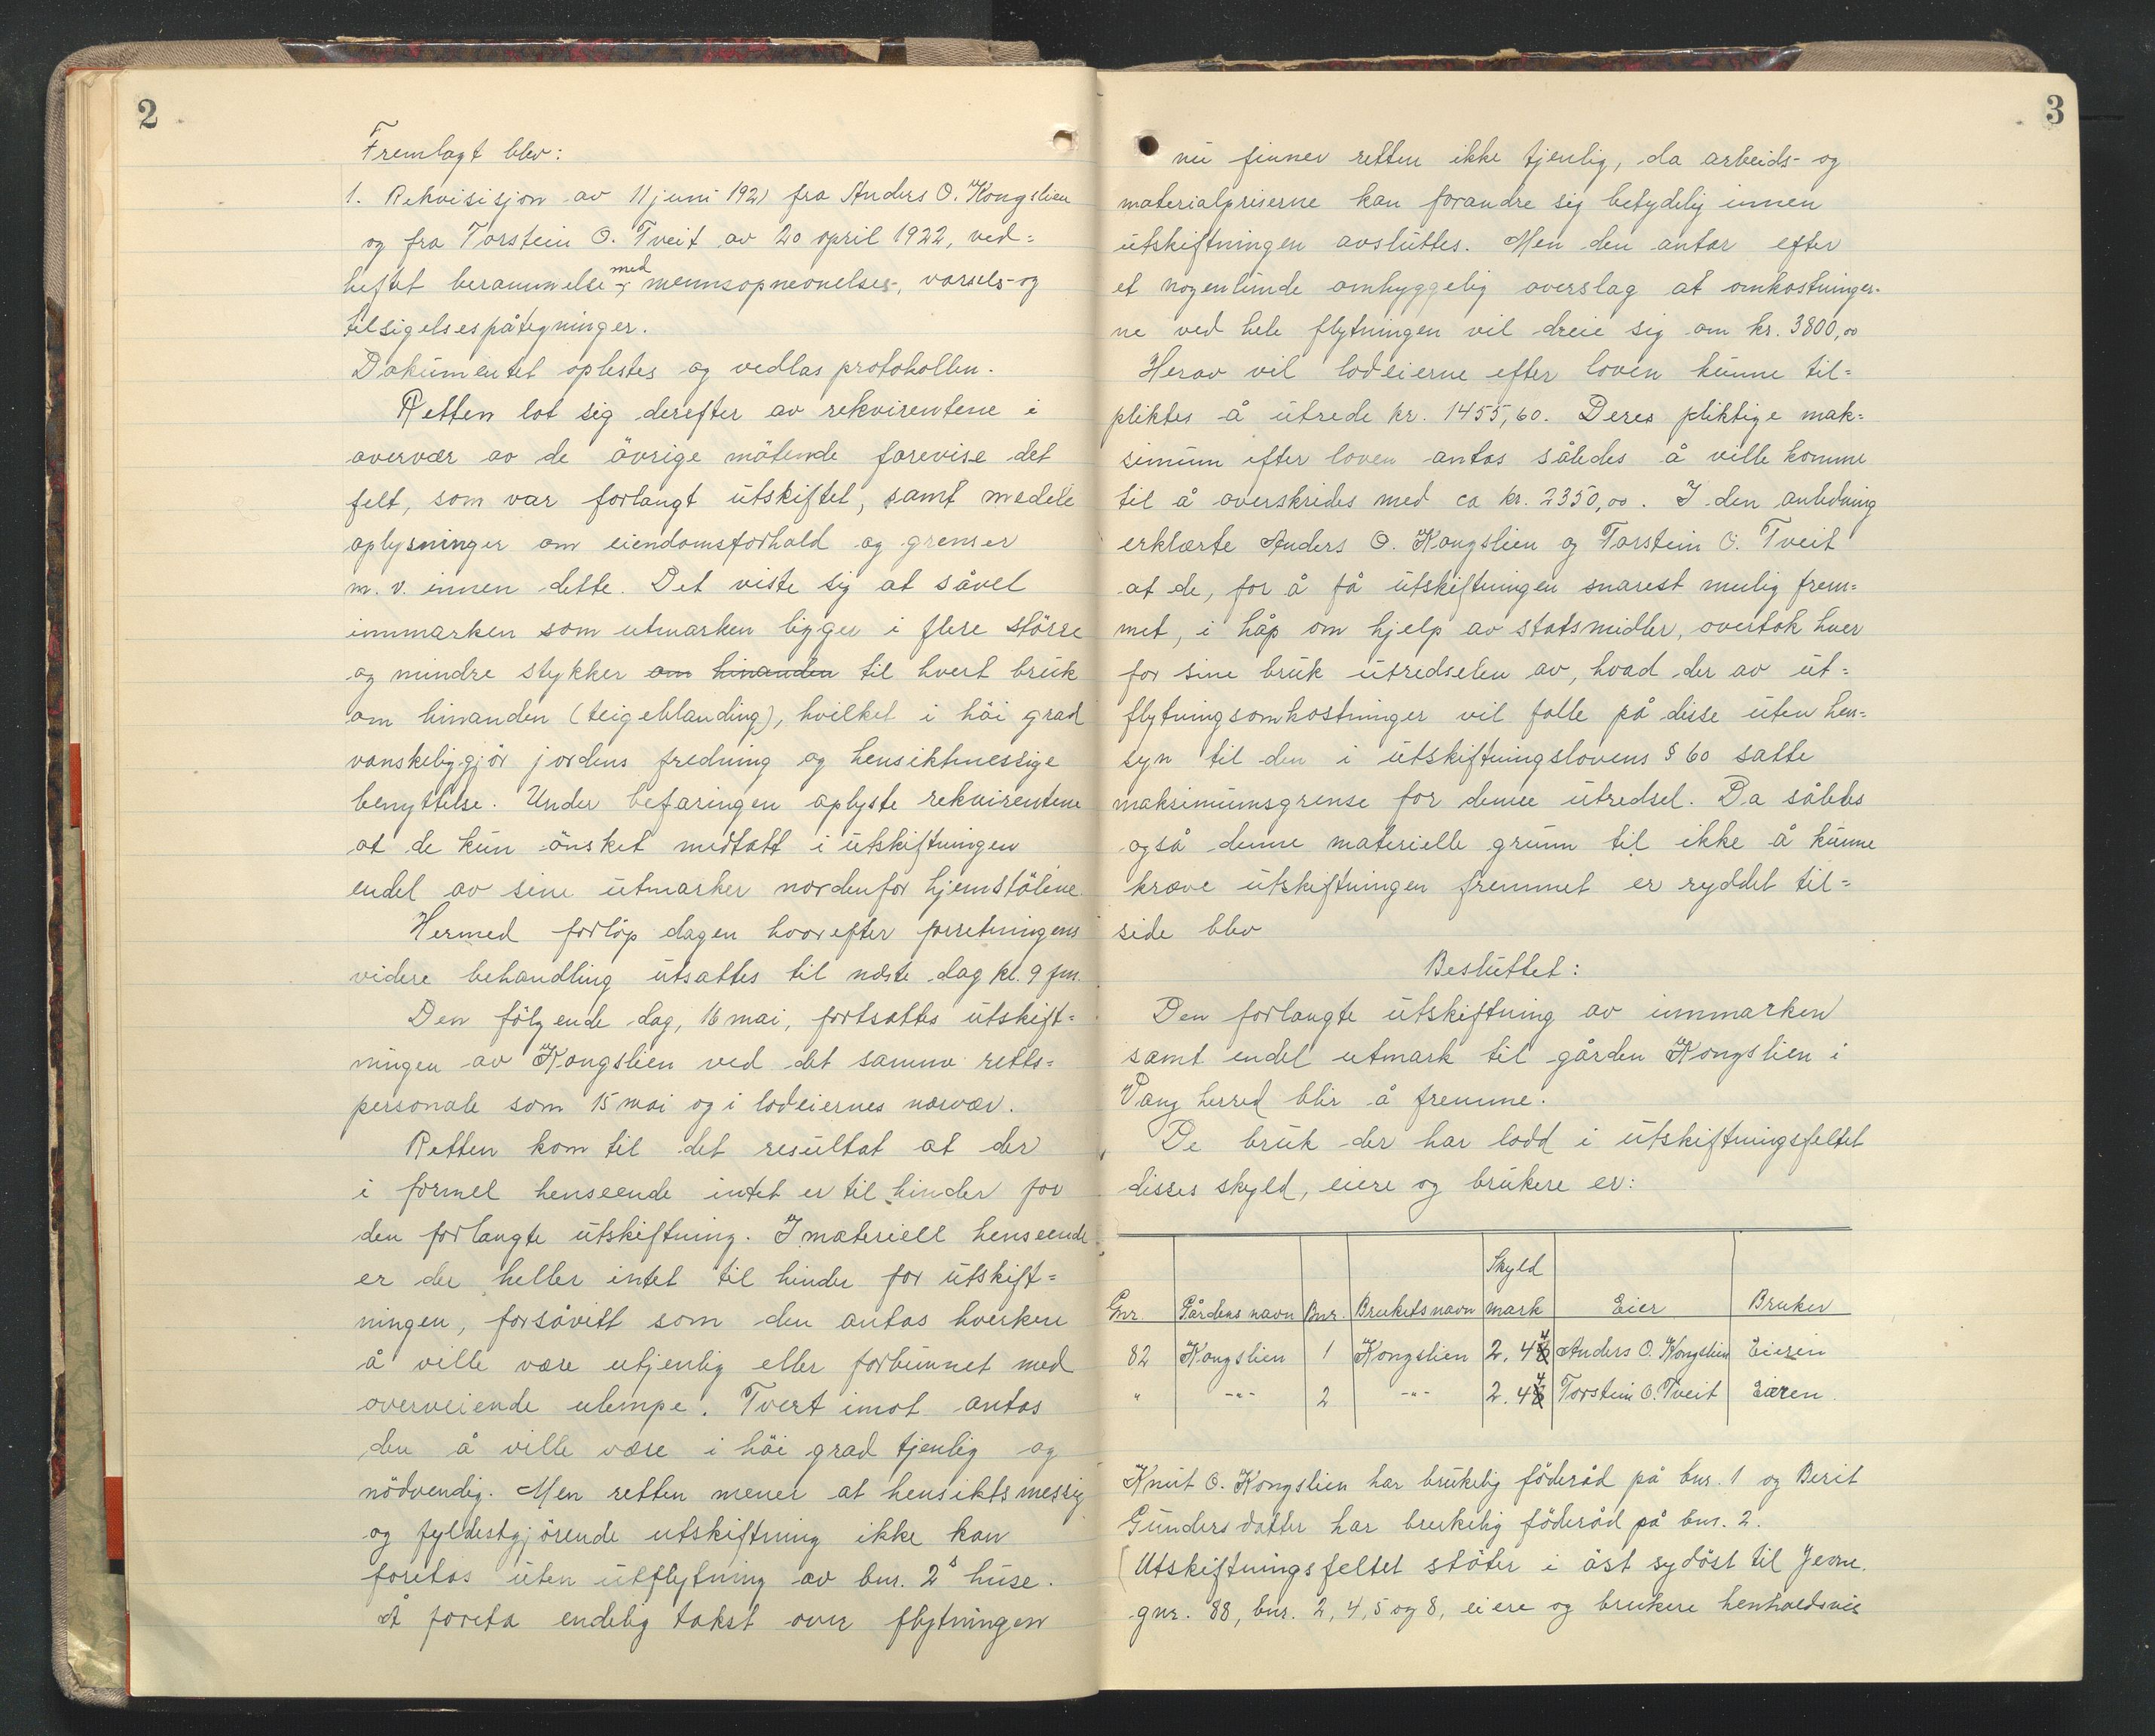 2
Fremlagt blev:
1. Rekvisisjon av 11 juni 1921 fra Anders O. Kongslien
og fra Torstein O. Tveit av 20 april 1922, ved=
heftet berammelse med mennsopnevnelses-, varsels- og
tilsigelsespåtegninger.
Dokumentet oplestes og vedlas protokollen.
Retten lot sig derefter av rekvirentene i
overvær av de övrige mötende forevise det
felt, som var forlangt utskiftet, samt meddele
oplysninger om eiendomsforhold og grenser
m. v. innen dette. Det viste sig at såvel
innmarken som utmarken ligger i flere större
og mindre stykker om hinanden til hvert bruk
om hinanden (teigeblanding), hvilket i höi grad
vanskeliggjör jordens fredning og hensiktmessige
benyttelse. Under befaringen oplyste rekvirentene
at de kun önsket medtatt i utskiftningen
endel av sine utmarker nordenfor hjemstölene.
Hermed forlöp dagen hvorefter forretningens
videre behandling utsattes til næste dag kl. 9 fm.
Den fölgende dag, 16 mai, fortsattes utskift=
ningen av Kongslien ved det samme retts=
personale som 15 mai og i lodeiernes nærvær.
Retten kom til det resultat at der
i formel henseende intet er til hinder for
den forlangte utskiftning. I materiell henseende
er der heller intet til hinder for utskift=
ningen, forsåvitt som den antas hverken
å ville være utjenlig eller forbunnet med
overveiende ulempe. Tvert imot antas
den å ville være i höi grad tjenlig og
nödvendig. Men retten mener at hensiktsmessig
og fyldestgjörende utskiftning ikke kan
foretas uten utflytning av bnr. 2s huse.
Å foreta endelig takst over flytningen
3
nu finner retten ikke tjenlig, da arbeids- og
materialpriserne kan forandre sig betydelig innen
utskiftningen avsluttes. Men den antar efter
et nogenlunde omhyggelig overslag at omkostninger-
ne ved hele flytningen vil dreie sig om kr. 3800,00
Herav vil lodeierne efter loven kunne til=
pliktes å utrede kr. 1455,60. Deres pliktige mak=
simum efter loven antas således å ville komme
til å overskrides med ca kr. 2350,00. I den anledning
erklærte Anders O. Kongslien og Torstein O. Tveit
at de, for å få utskiftningen snarest mulig frem=
met, i håp om hjelp av statsmidler, overtok hver
for sine bruk utredselen av, hvad der av ut=
flytningsomkostninger vil falle på disse uten hen=
syn til den i utskiftningslovens § 60 satte
maksimumsgrense for denne utredsel. Da således
også denne materielle grunn til ikke å kunne
kræve utskiftningen fremmet er ryddet til=
side blev
Besluttet:
Den forlangte utskiftning av innmarken
samt endel utmark til gården Kongslien i
Vang herred blir å fremme.
De bruk der har lodd i utskiftningsfeltet
disses skyld, eiere og brukere er:
Gnr. Gårdens navn Bnr. Bruketsnavn Skyld mark Eier Bruker
82 Kongslien 1 Kongslien 2.44 Anders O. Kongslien Eieren
" -"- 2 -"- 2.44 Torstein O. Tveit Eieren.
Knut O. Kongslien har brukelig föderåd på bnr. 1 og Berit
Gundersdatter har brukelig föderåd på bnr. 2.
Utskiftningsfeltet stöter i öst sydöst til Jevne.
gnr. 88, bnr. 2, 4, 5 og 8, eiere og brukere henholdsvis